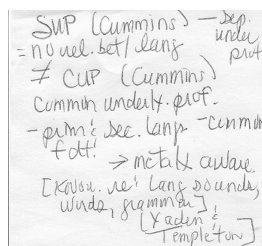 SUP (Cummins) — Sep. under prof
= no rel. bet/ lang
≠ CUP (Cummins)
Common underly. prof.
- prim & sec. lang - common
→ meta awar.
[Know. re: lang sounds,
words, grammar]
[Yaden &
Templeton]